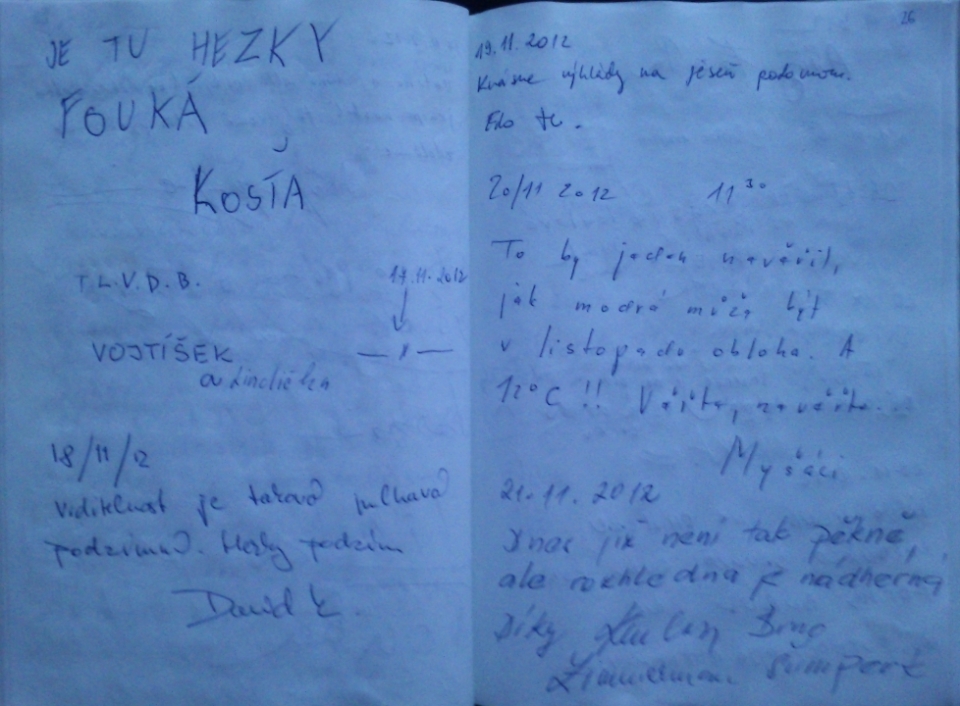 JE TU HEZKY
FOUKÁ
KOSŤA
T.L.V.D.B.
17.11.2012
VOJTÍŠEK
a
18/11/12
Viditelnost je taková mlhavá
podzimná. Hezký podzim
David K.
26
19.11.2012
Krásne výhlady na jéseň
20/11 2012 11³⁰
To by jeden nevěřil,
jak modrá může být
v listopadu obloha. A
12°C !! Věřte, nevěřte...
Myšáci
21.11.2012
Dnes již není tak pěkně,
ale rozhledna je nádherná
Díky
Zimmermann Šumperk